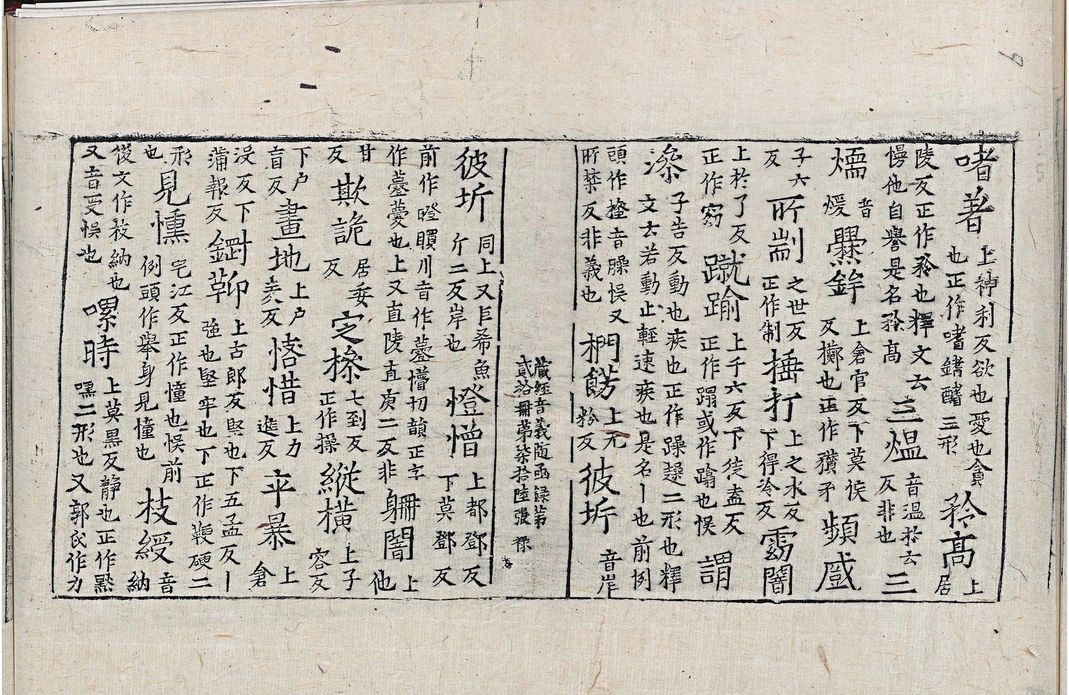 嗜著 上神利反欲也愛也貪也正作嗜䭫䤒三形 矜高 上居
陵反正作矜也釋文云慢他自譽是名矜高 三熅 音温菸云反非也 三
熅 音煖 㸑鉾 上倉官反下莫侯反擲也正作䂎矛 頻戚
子六反 所剬 之世反正作制 捶打 上之水反下得冷反 窱闇
上於了反正作窈 蹴踰 上千六反下徒盍反正作蹋或作蹹也悞 謂
㴜 子告反動也疾也正作躁趮二形也釋文云若動止輕速疾也是名丨也前例
頭作橙音臊悞又所禁反非義也 㭃餝 上无粉反 彼圻 音岸
藏經音義隨函録第貳拾冊第柒拾陸張 祿
彼圻 同上又巨希魚斤二反岸也 憕憎 上都鄧反下莫鄧反
前作瞪瞑川音作䔲懵切韻正字作䔲夢也上又直陵直庚二反非 躭闇 上他
甘反 欺詭 居委反 㝎㮯 七到反正作操 縱橫 上子容反
下户盲反 畫地 上户麦反 悋惜 上力進反 卒暴 上倉
没反下蒲報反 鋼䩕 上古郎反堅也下五孟反丨強也堅牢也下正作鞕硬二
形也 見憄 宅江反正作憧也悞前例頭作舉身見憧也 枝綬 音納
後文作衩納也又音受悞也 嘿時 上莫黑反静也正作默嘿二形也又郭氏作力